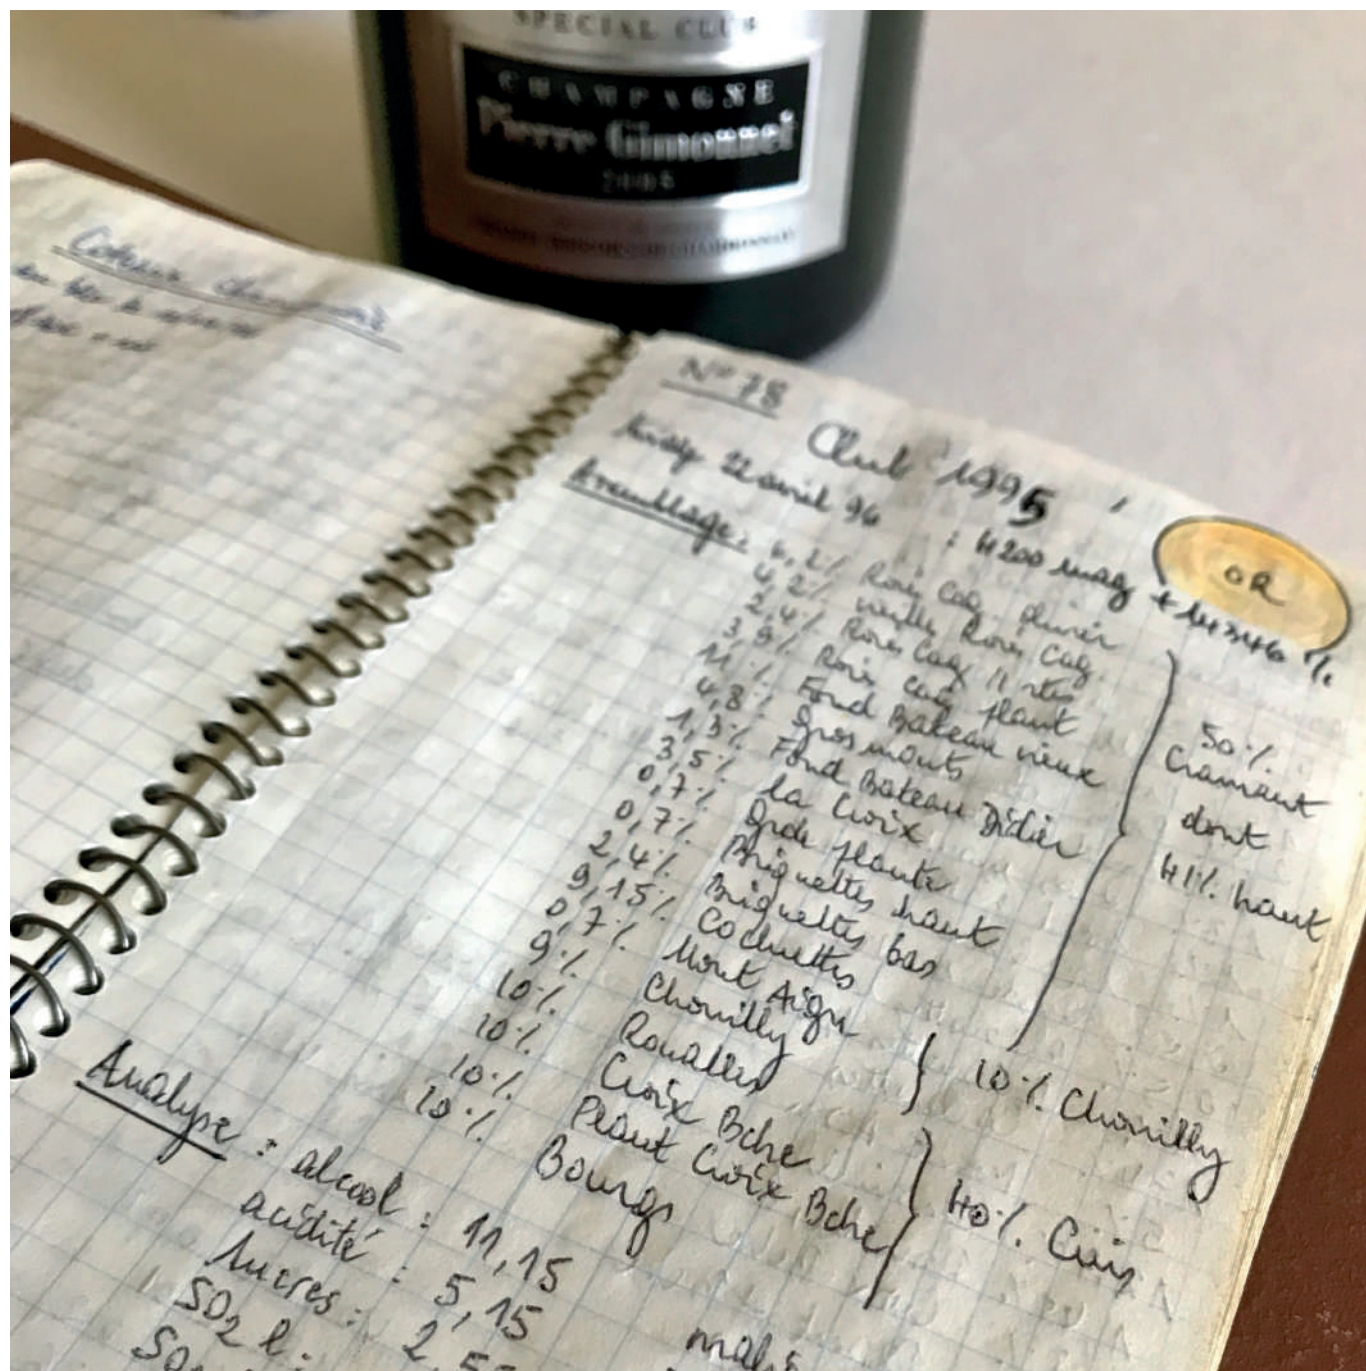 SPECIAL CLUB
CHAMPAGNE
Pierre Gimonnet
2005
Coteaux
N° 78
Club 1995
22 avril 96 : 4200 mag + 14346 %
OR
Assemblage:
6,2% Rois Caq.
4,2% vieille Rois Caq.
2,4% Rois Caq 11 rtes
3,9% Rois Caq plant
11% Fond Bateau vieux
4,8% Gros monts
1,3% Fond Bateau Didier
3,5% la Croix
0,7% Gde plante
0,7% Briquettes haut
2,4% Briquettes bas
9,15% Cochettes
0,7% Mont Aigu
9% Chouilly
10% Roualles
10% Croix Bche
10% Plant Croix Bche
10% Bourgs
50% Cramant
dont
41% haut
10% Chouilly
40% Cuis
Analyse : alcool : 11,15
acidité : 5,15
sucres : 2,5
SO2 l.
SO